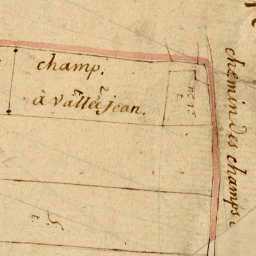 champ.
à Vallée jean.
chemin des champs